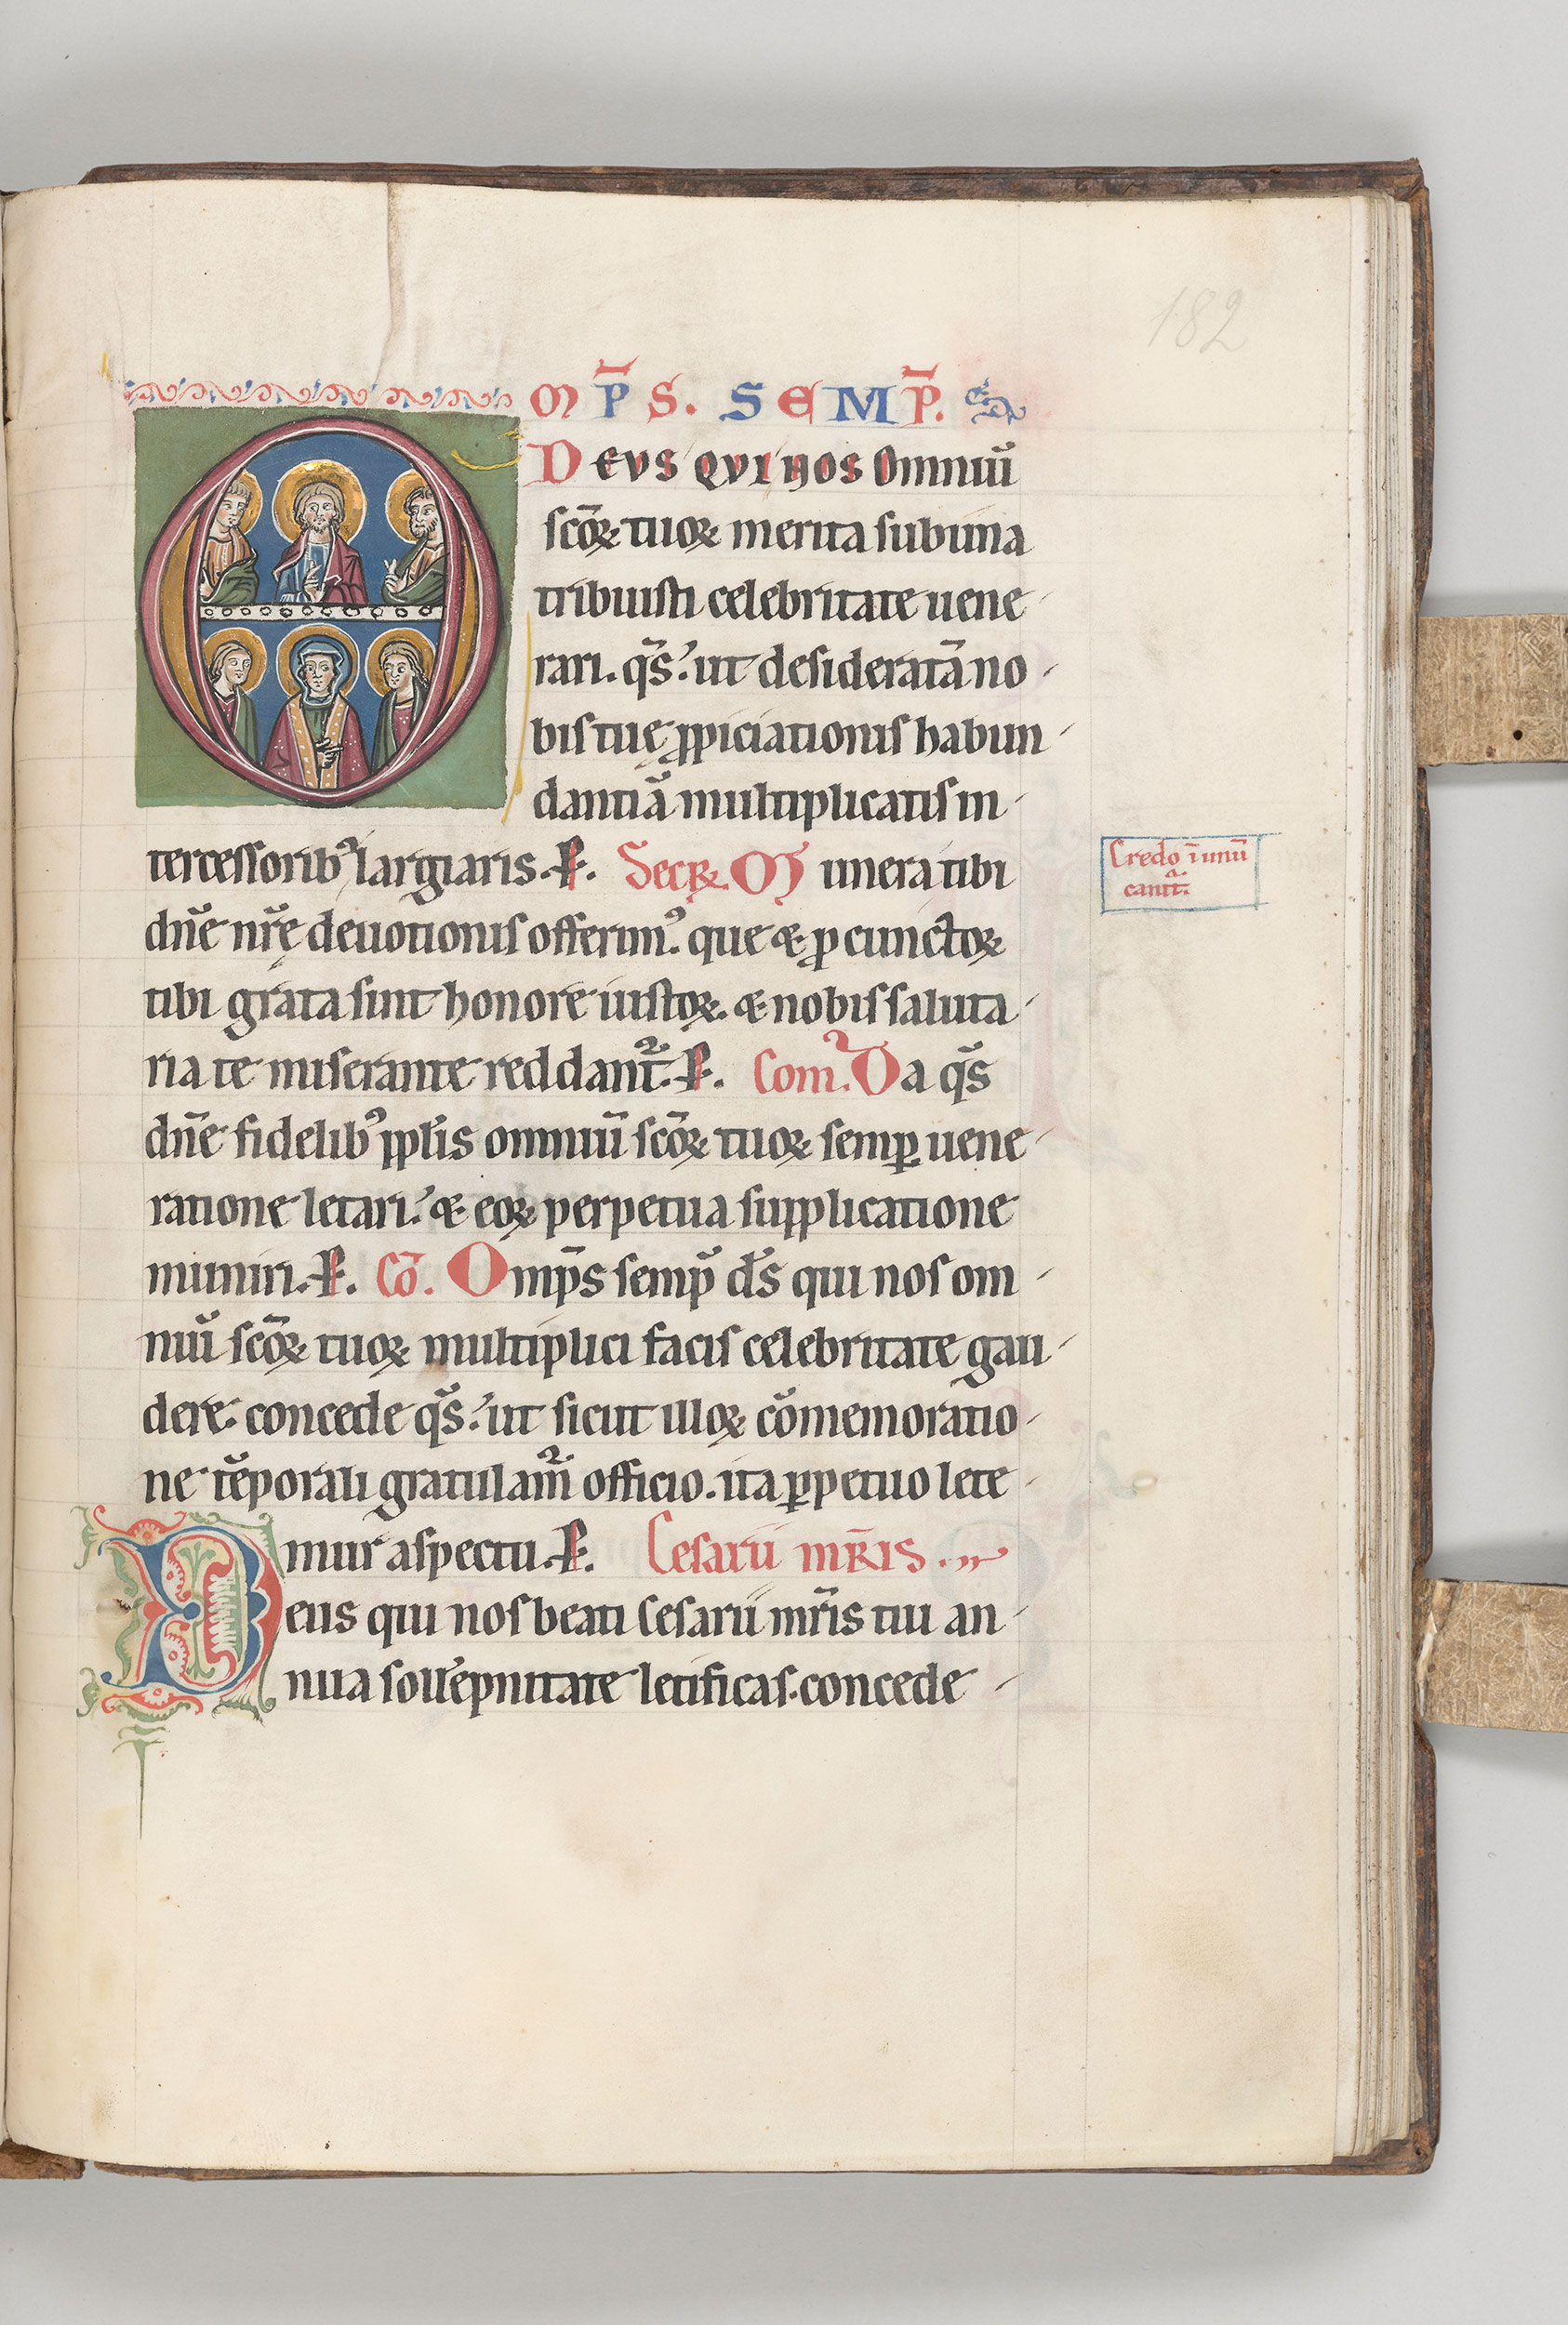 182
OMP̄S. SEMP̄.
DEVS QVI NOS Omniū
scōꝝ tuoꝝ merita sub una
tribuisti celebritate uene
rari. qs̄. ut desideratā no
bis tuę ꝓpiciationis habun
dantiā multiplicatis in
tercessorib⁹ largiaris. P. Secꝝ. Munera tibi
dn̄e nr̄ę deuotionis offerim⁹. que & ꝓ cunctoꝝ
tibi grata sint honore iustoꝝ. & nobis saluta
ria te miserante reddant᷑. P. Com. Da qs̄
dn̄e fidelib⁹ ppl̄is omniū scōꝝ tuoꝝ semꝑ uene
ratione letari. & eoꝝ perpetua supplicatione
muniri. P. Cō. Omp̄s semp̄ ds̄ qui nos om
niū scōꝝ tuoꝝ multiplici facis celebritate gau
dere. concede qs̄. ut sicut illoꝝ cōmemoratio
ne tēporali gratulam᷑ officio. ita ꝑpetuo lete
mur aspectu. P. Cesarii mr̄is.
Deus qui nos beati Cesarii mr̄is tui an
nua sollēpnitate letificas. concede
Credo ī unū
cant᷑.